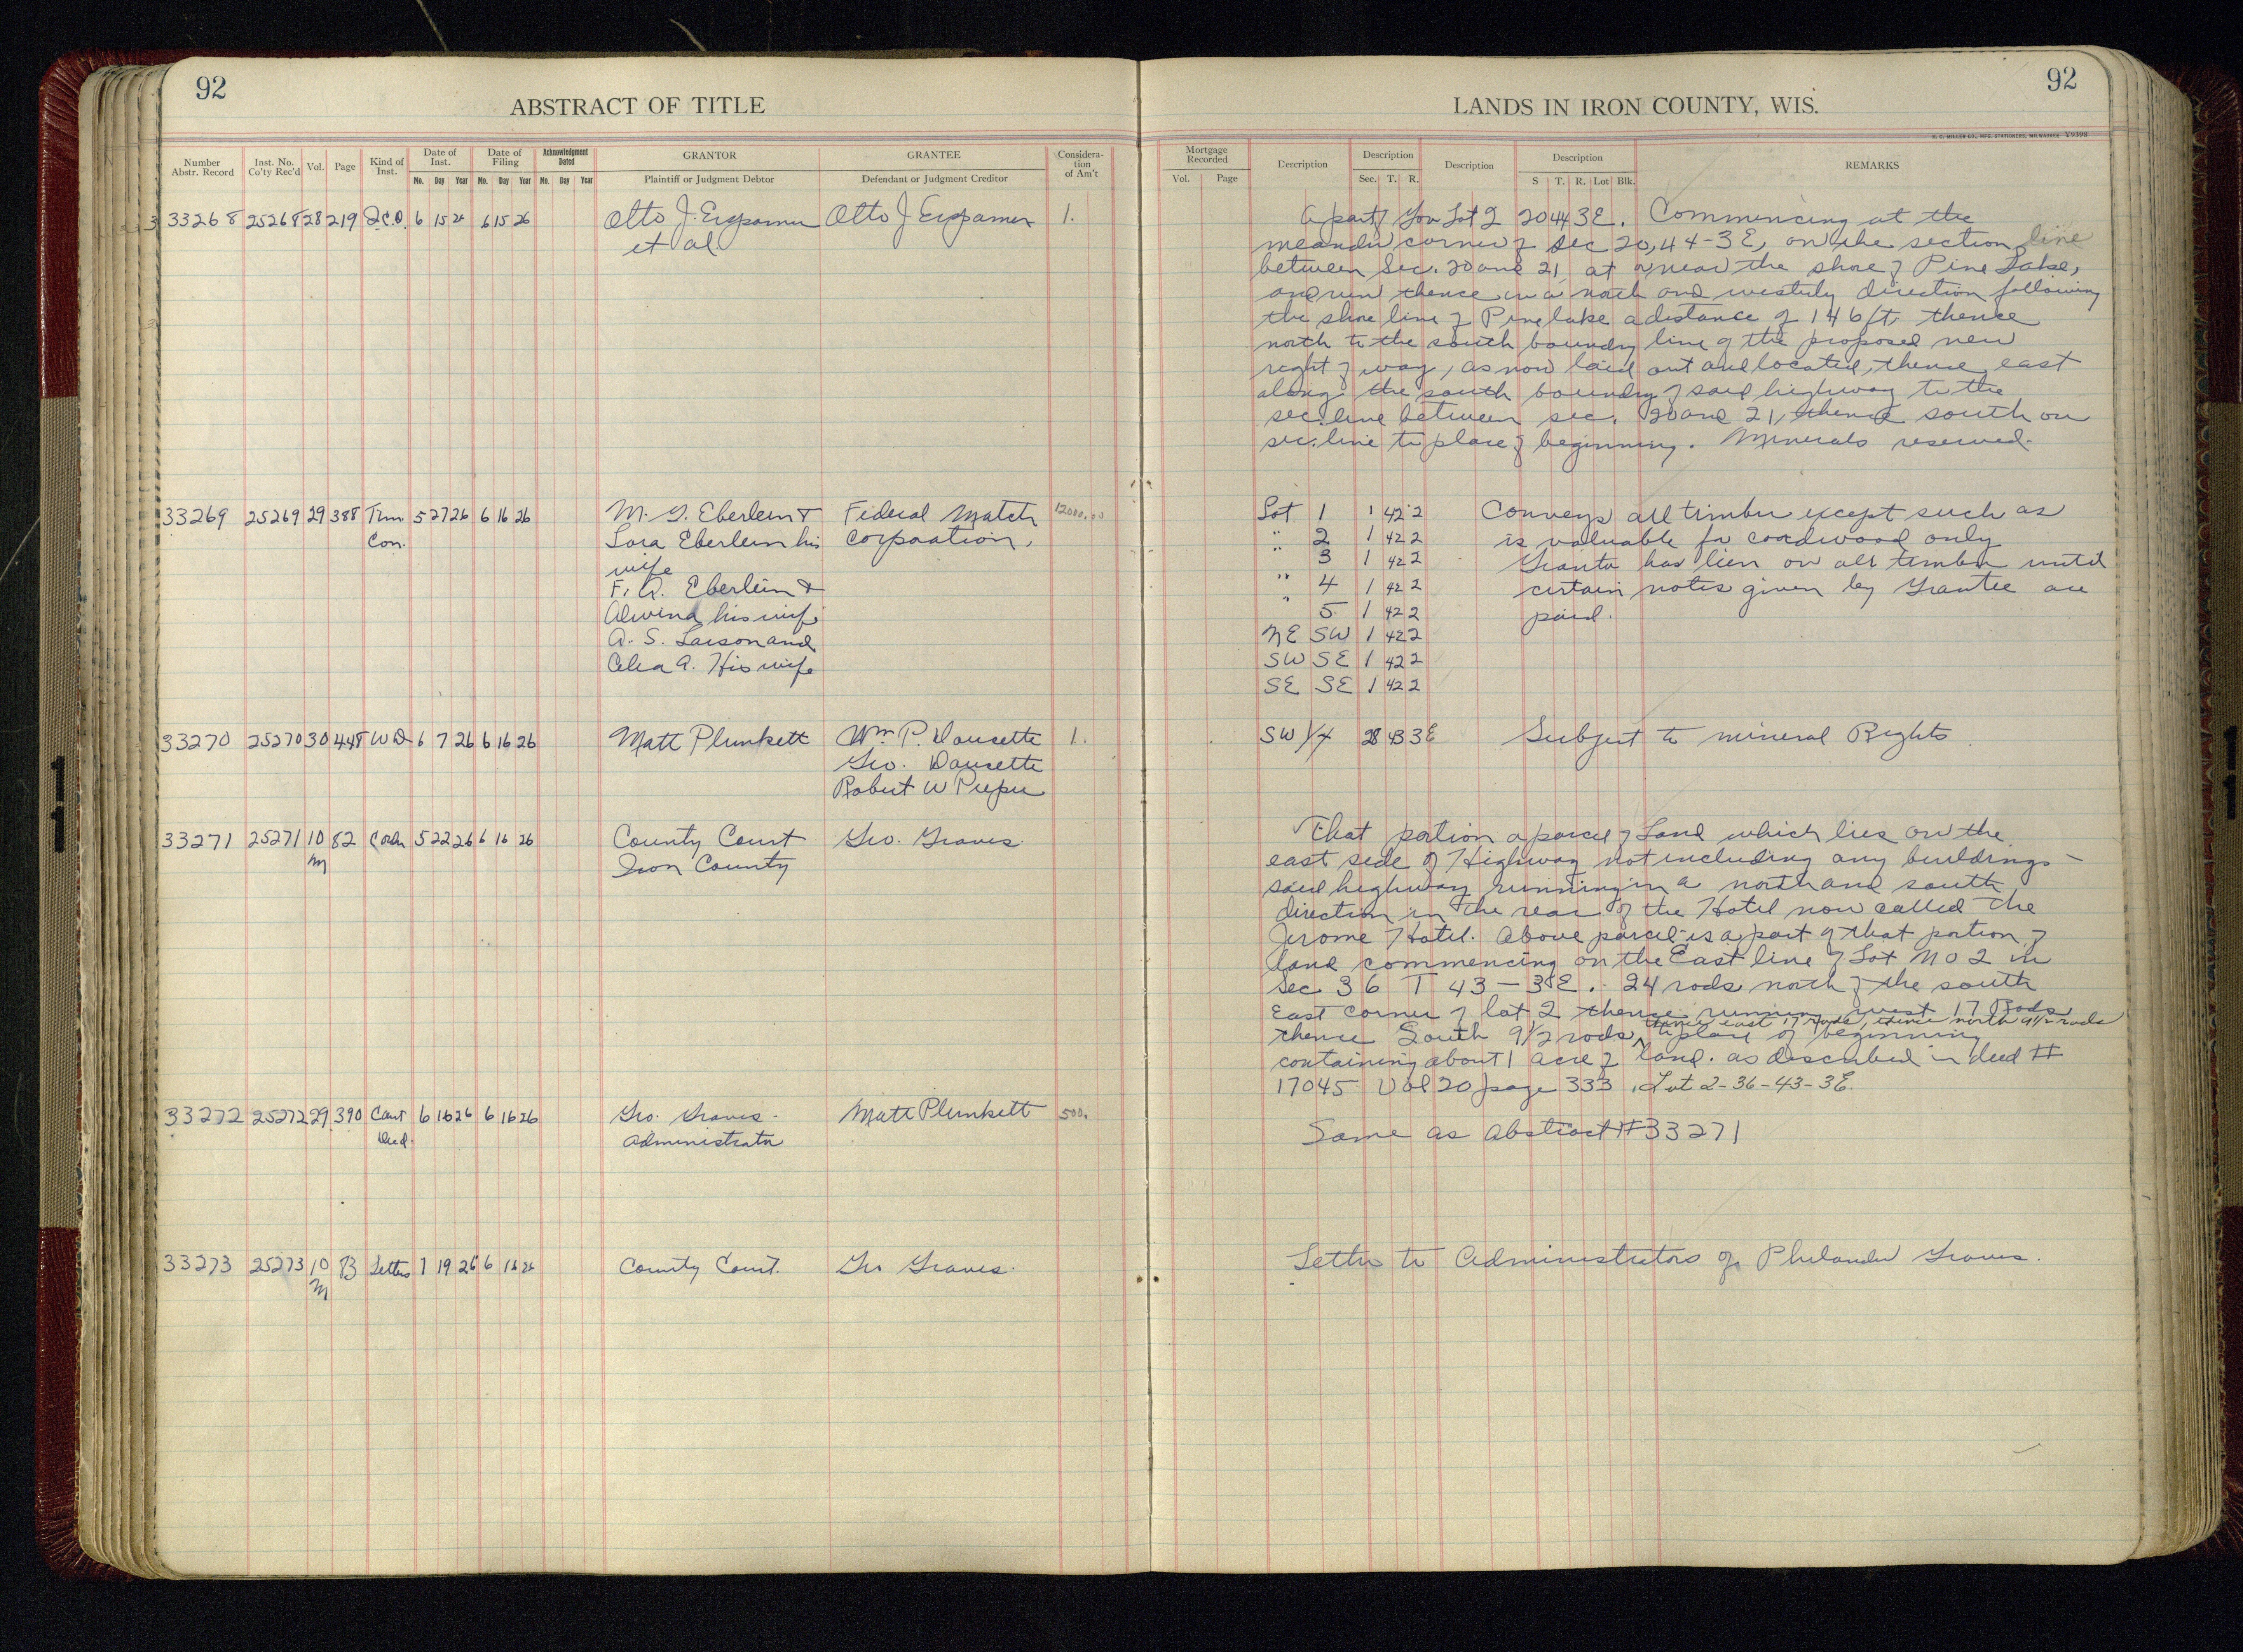 92
ABSTRACT OF TITLE
Number Abstr. Record
Inst. No. Co'ty Rec'd
Vol.
Page
Kind of Inst.
Date of Inst.
Mo. Day Year
Date of Filing
Mo. Day Year
Acknowledgment Dated
Mo. Day Year
GRANTOR
Plaintiff or Judgment Debtor
GRANTEE
Defendant or Judgment Creditor
Considera-
tion
of Am't
33268 25268 28 219 Q.C.D. 6 15 26 6 15 26 Otto J. Otto J 1.
et al.
33269 25269 29 388 Tim 5 27 26 6 16 26 M. G. Eberlein & Federal Match 12000.00
Con. Lora Eberlein his corporation.
wife
F. A. Eberlein &
Alwina his wife
A. S. Larson and
Celia A. His wife
33270 25270 30 448 W D 6 7 26 6 16 26 Matt Plunkett Wm. P. Dousette 1.
Geo. Dousette
Robert W
33271 25271 10 82 5 22 26 6 16 26 County Court Geo. Graves.
M Iron County
33272 25272 29 390 6 16 26 6 16 26 Geo. Graves - Matt Plunkett 500.
Deed. Administrator
33273 25273 10 83 Letters 1 19 26 6 16 26 County Court. Geo Graves.
M
92
LANDS IN IRON COUNTY, WIS.
H. C. MILLER CO., MFG. STATIONERS, MILWAUKEE Y9398
Mortgage Recorded
Vol. Page
Description
Description
Sec. T. R.
Description
Description
S T. R. Lot Blk.
REMARKS
A part of Gov Lot 2 20 44 3E. Commencing at the
meander corner of Sec 20, 44-3E, on the section line
between Sec. 20 and 21 at or near the shore of Pine Lake,
and run thence in a north and westerly direction following
the shore line of Pine lake a distance of 146 ft. thence
north to the south boundry line of the proposed new
right of way, as now laid out and located, thence east
along the south boundry of said highway to the
sec. line between sec. 20 and 21, thence south on
sec. line to place of beginning. Minerals reserved.
Lot 1 1 42 2 Conveys all timber except such as
" 2 1 42 2 is valuable for cordwood only
" 3 1 42 2 Grantor has lien on all timber until
" 4 1 42 2 certain notes given by Grantee are
" 5 1 42 2 paid.
NE SW 1 42 2
SW SE 1 42 2
SE SE 1 42 2
SW 1/4 28 43 3E Subject to mineral Rights
That portion a parcel of Land which lies on the
east side of Highway not including any buildings -
said highway running in a north and south
direction in the rear of the Hotel now called the
Jerome Hotel. Above parcel is a part of that portion of
land commencing on the East line of Lot No 2 in
Sec 36 T 43-3E. 24 rods north of the south
East corner of lot 2 thence running west 17 Rods
thence east 17 rods, thence north 9 1/2 rods
thence South 9 1/2 rods, ^ to place of beginning
containing about 1 acre of land. as described in deed #
17045 Vol 20 page 333. Lot 2-36-43-3E.
Same as Abstract #33271
Letters to Administrators of Philander Graves.